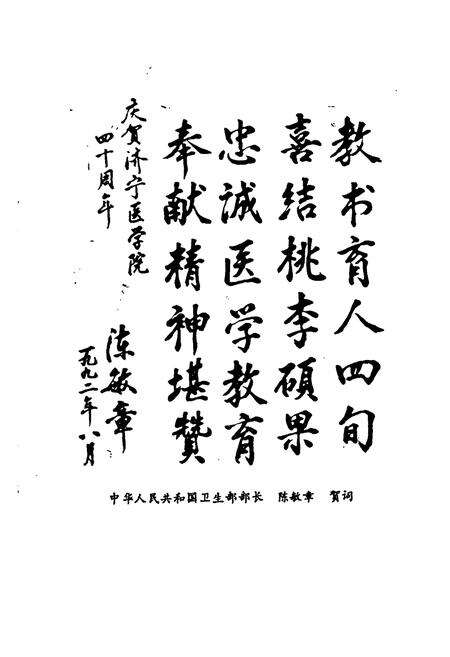 教书育人四旬
喜结桃李硕果
忠诚医学教育
奉献精神堪赞
庆贺济宁医学院
四十周年
陈敏章
一九九二年八月
中华人民共和国卫生部部长 陈敏章 贺词